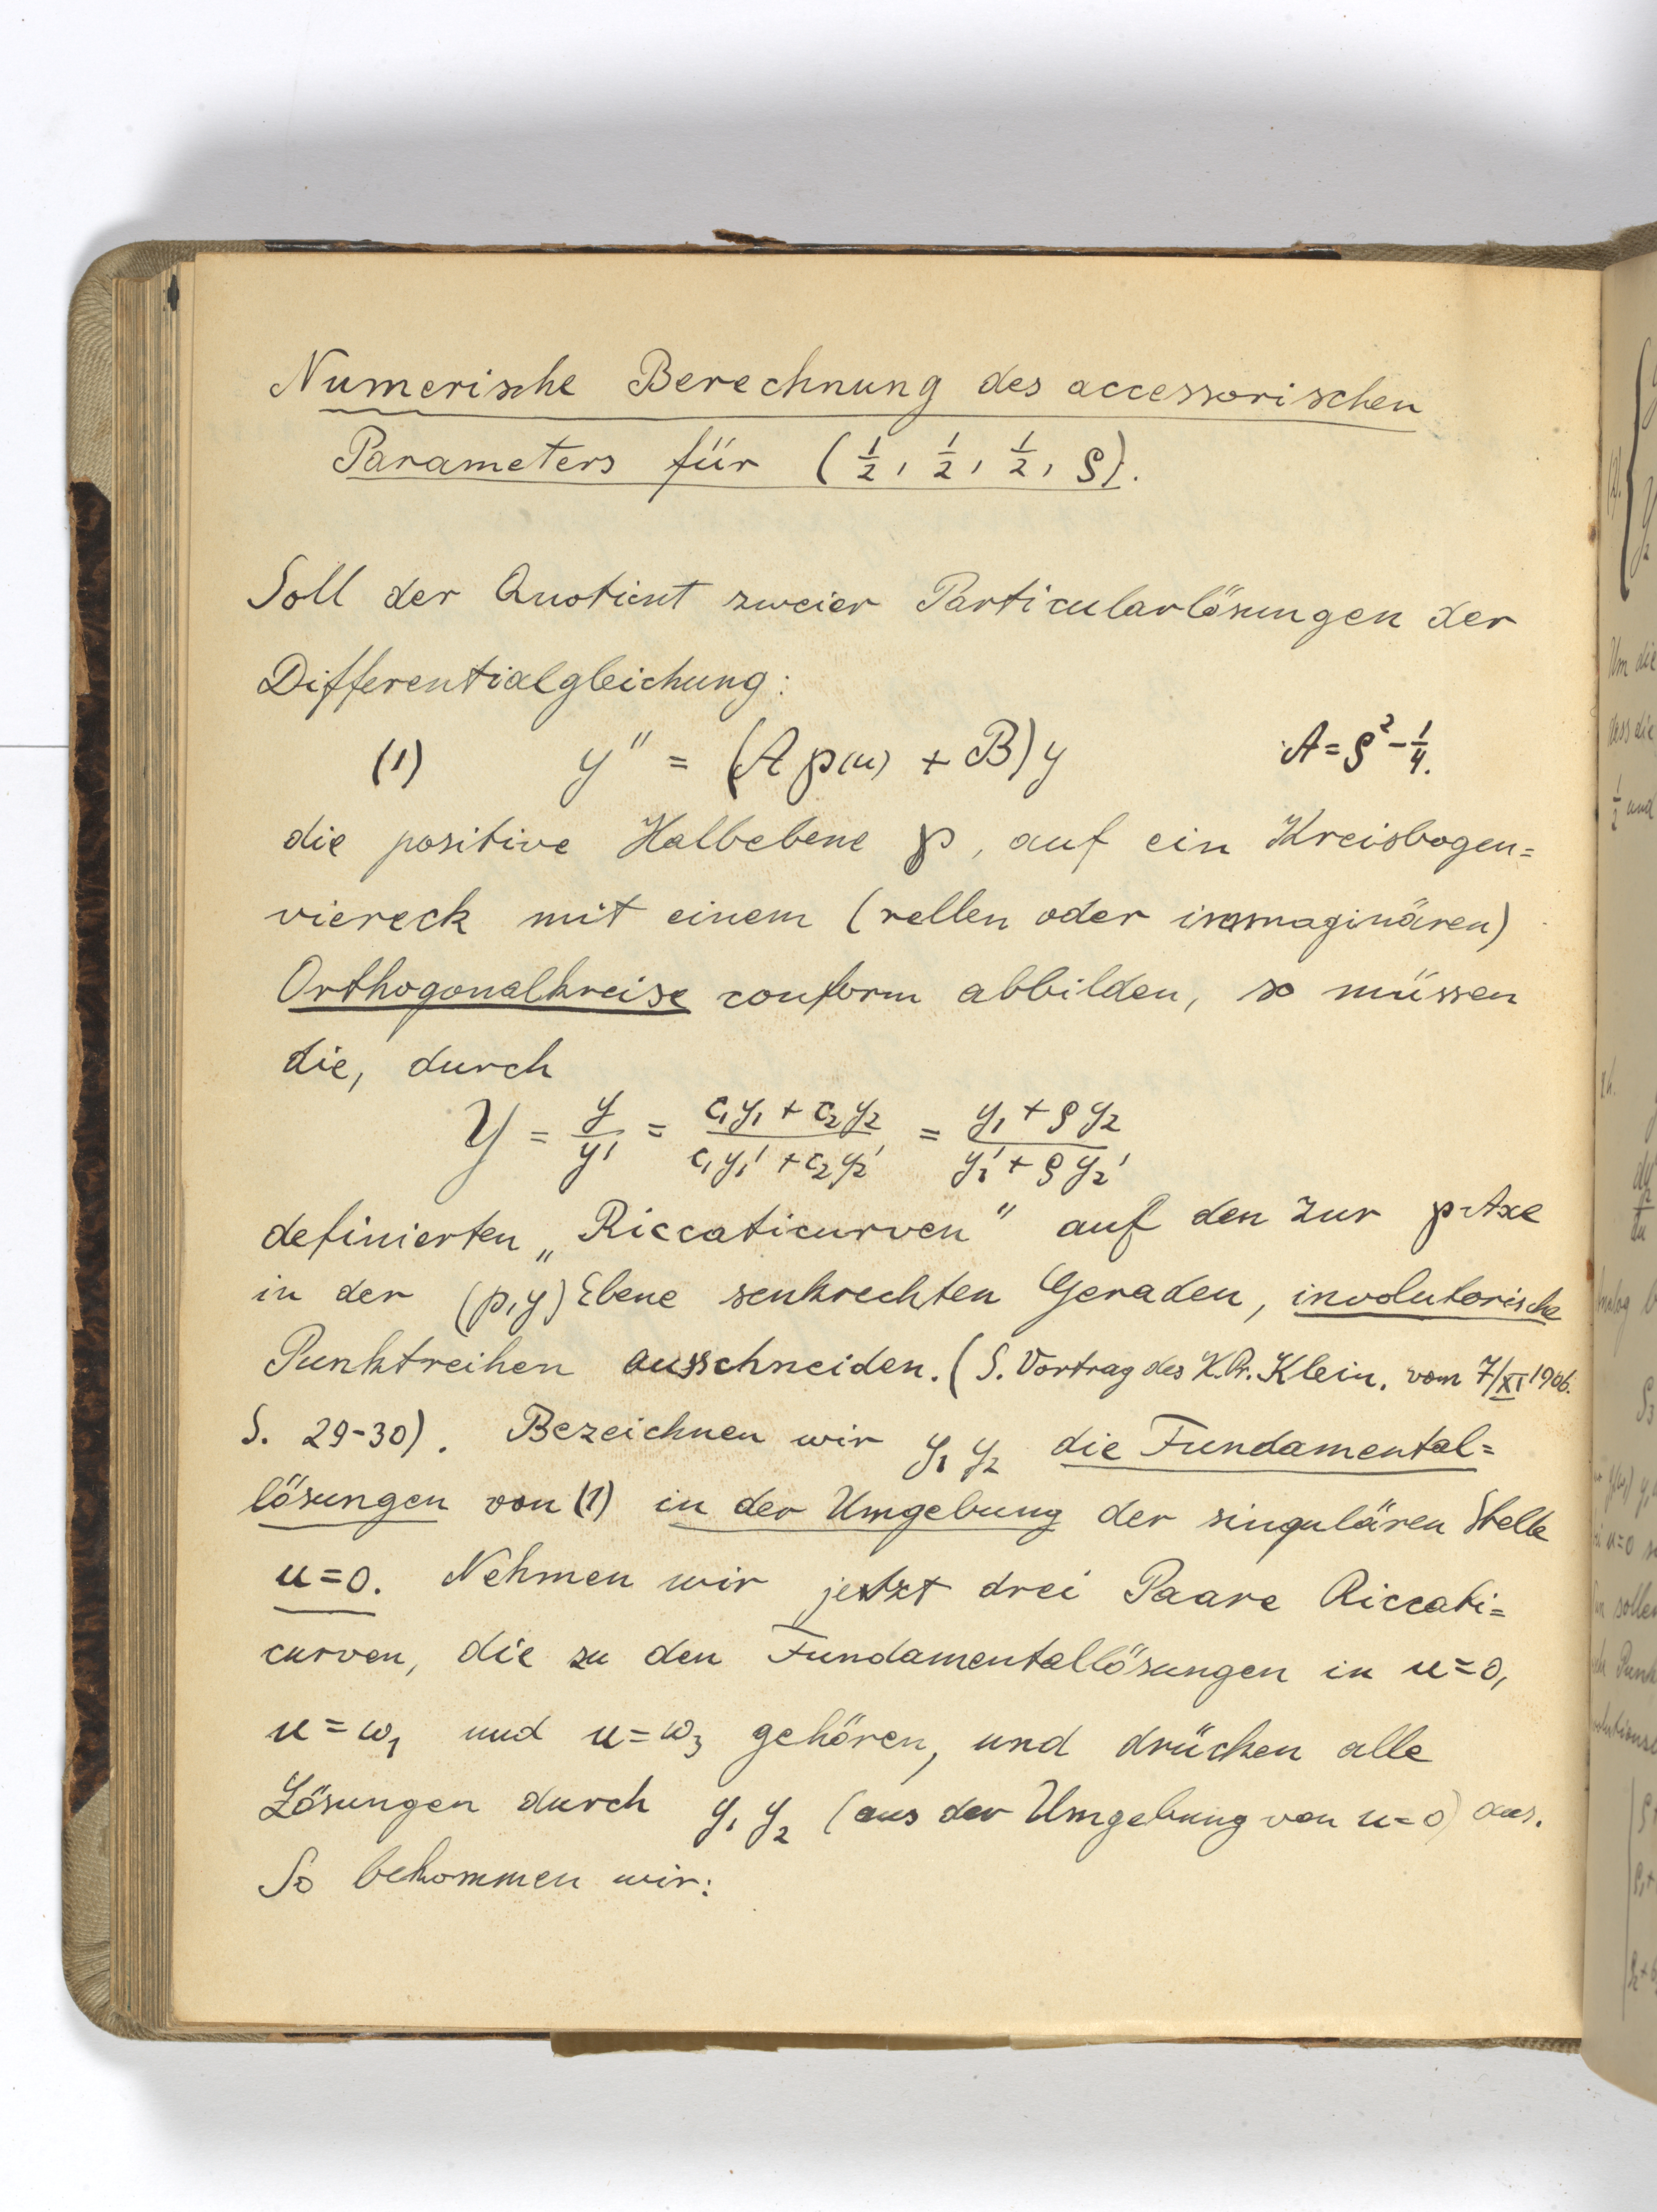 Numerische Berechnung des accessorischen
Parameters für (1/2, 1/2, 1/2, ρ).
Soll der Quotient zweier Particularlösungen der
Differentialgleichung:
(1) y'' = (A ℘(u) + B) y A = ρ² - 1/4.
die positive Halbebene ℘, auf ein Kreisbogen=
viereck mit einem (rellen oder immaginären)
Orthogonalkreise conform abbilden, so müssen
die, durch
Y = y/y' = (c₁y₁ + c₂y₂)/(c₁y₁' + c₂y₂') = (y₁ + ρy₂)/(y₁' + ρy₂')
definierten „Riccaticurven" auf den zur p-Axe
in der (p,y) Ebene senkrechten Geraden, involutorische
Punktreihen ausschneiden. (S. Vortrag des Klein, vom 7/XI 1906.
S. 29-30). Bezeichnen wir y₁ y₂ die Fundamental=
lösungen von (1) in der Umgebung der singulären Stelle
u=0. Nehmen wir jetzt drei Paare Riccati=
curven, die zu den Fundamentallösungen in u=0,
u=ω₁ und u=ω₃ gehören, und drücken alle
Lösungen durch y₁ y₂ (aus der Umgebung von u=0) aus.
So bekommen wir: